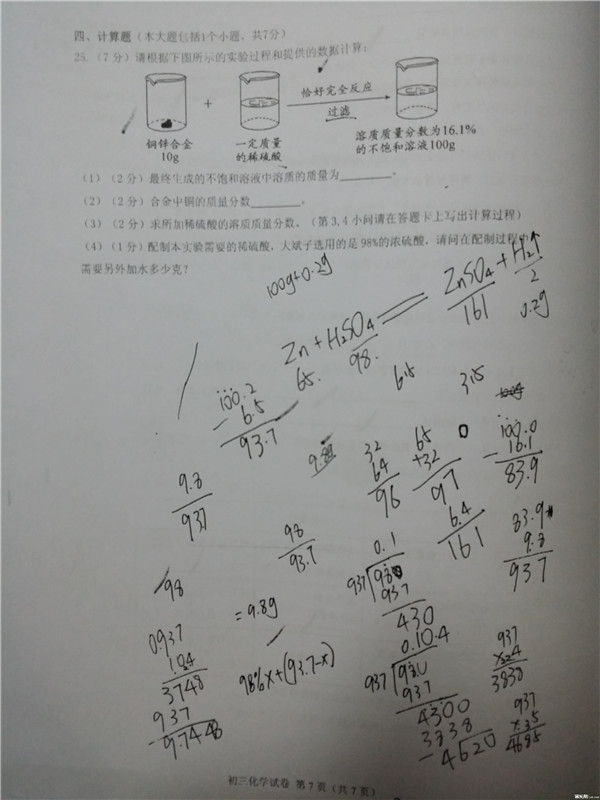 四、计算题（本大题包括1个小题，共7分）
25.（7分）请根据下图所示的实验过程和提供的数据计算：
铜锌合金
10g
+
一定质量
的稀硫酸
恰好完全反应
过滤
溶质质量分数为16.1%
的不饱和溶液100g
（1）（2分）最终生成的不饱和溶液中溶质的质量为________。
（2）（2分）合金中铜的质量分数________。
（3）（2分）求所加稀硫酸的溶质质量分数。（第3,4小问请在答题卡上写出计算过程）
（4）（1分）配制本实验需要的稀硫酸，大斌子选用的是98%的浓硫酸，请问在配制过程中
需要另外加水多少克？
100g+0.2g
Zn + H2SO4 = ZnSO4 + H2↑
65. 98. 161 2
0.2g
6.5
100.2
- 6.5
93.7
32
64
96
65
+32
97
0
100.0
- 16.1
83.9
9.8
937
98
93.7
6.4
161
83.9
9.8
937
0.1
937
937
430
98
= 9.8g
0.937
3748
937
9.7448
98%x+(93.7-x)
0.10.4
937
937
4300
4620
937
3838
937
x.35
4685
初三化学试卷 第7页（共7页）